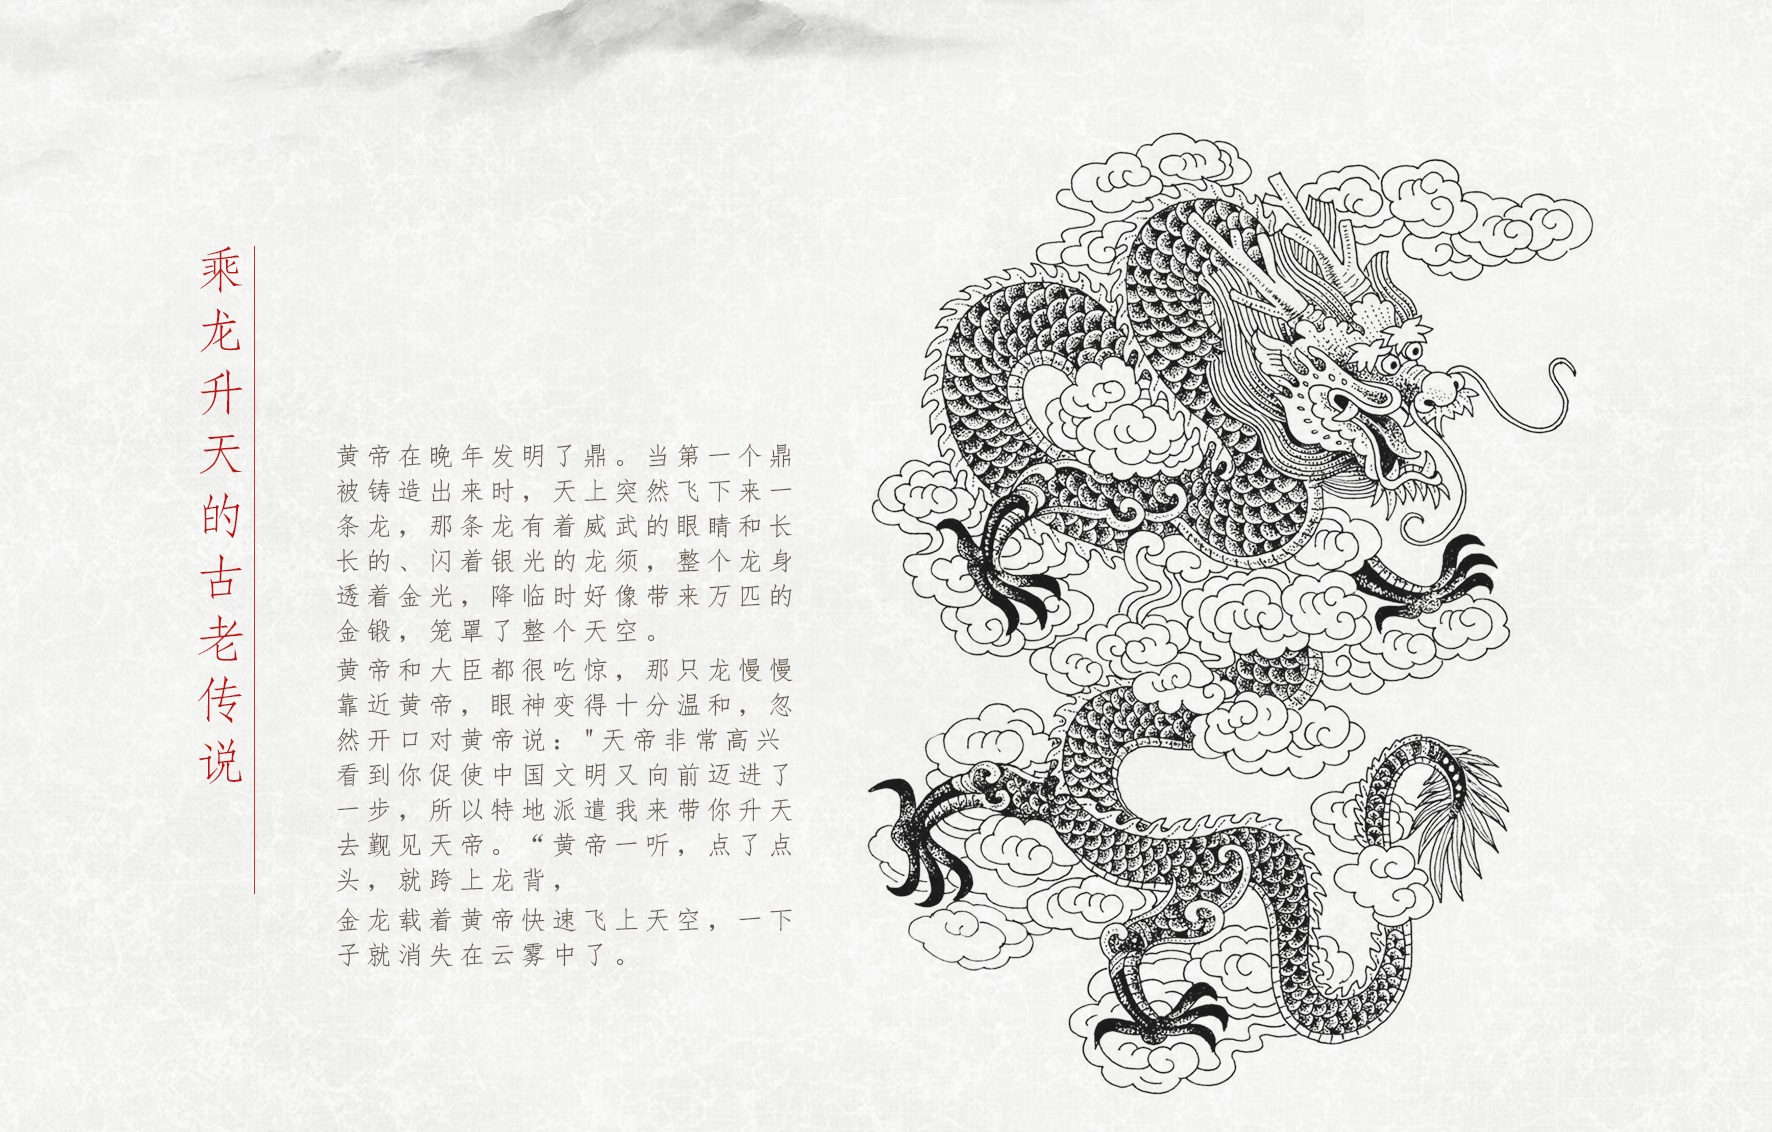 乘龙升天的古老传说
黄帝在晚年发明了鼎。当第一个鼎
被铸造出来时，天上突然飞下来一
条龙，那条龙有着威武的眼睛和长
长的、闪着银光的龙须，整个龙身
透着金光，降临时好像带来万匹的
金锻，笼罩了整个天空。
黄帝和大臣都很吃惊，那只龙慢慢
靠近黄帝，眼神变得十分温和，忽
然开口对黄帝说："天帝非常高兴
看到你促使中国文明又向前迈进了
一步，所以特地派遣我来带你升天
去觐见天帝。“黄帝一听，点了点
头，就跨上龙背，
金龙载着黄帝快速飞上天空，一下
子就消失在云雾中了。